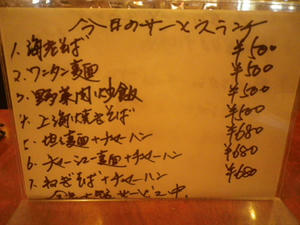 今日のサービスランチ
1. 海老そば ¥500
2. ワンタン麺 ¥500
3. 野菜肉炒飯 ¥500
4. 上海焼きそば ¥500
5. 担々麺+チャーハン ¥680
6. チャーシュー麺+チャーハン ¥680
7. ねぎそば+チャーハン ¥680
サービス中